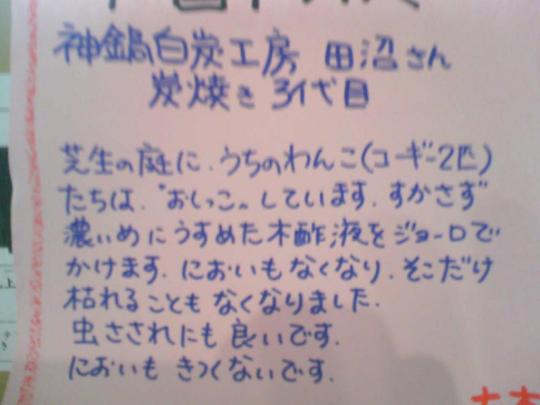 神鍋白炭工房 田沼さん
炭焼き 3代目
芝生の庭に、うちのわんこ(コーギー2匹)
たちは、"おしっこ"しています。すかさず
濃いめにうすめた木酢液をジョーロで
かけます。においもなくなり、そこだけ
枯れることもなくなりました。
虫さされにも良いです。
においもきつくないです。